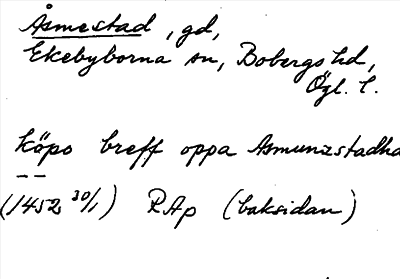 Åsmestad, gd,
Ekebyborna sn, Bobergs hd,
Ögl. l.
köpo breff oppa Asmunzstadha
(1452 30/1) RAp (baksidan)